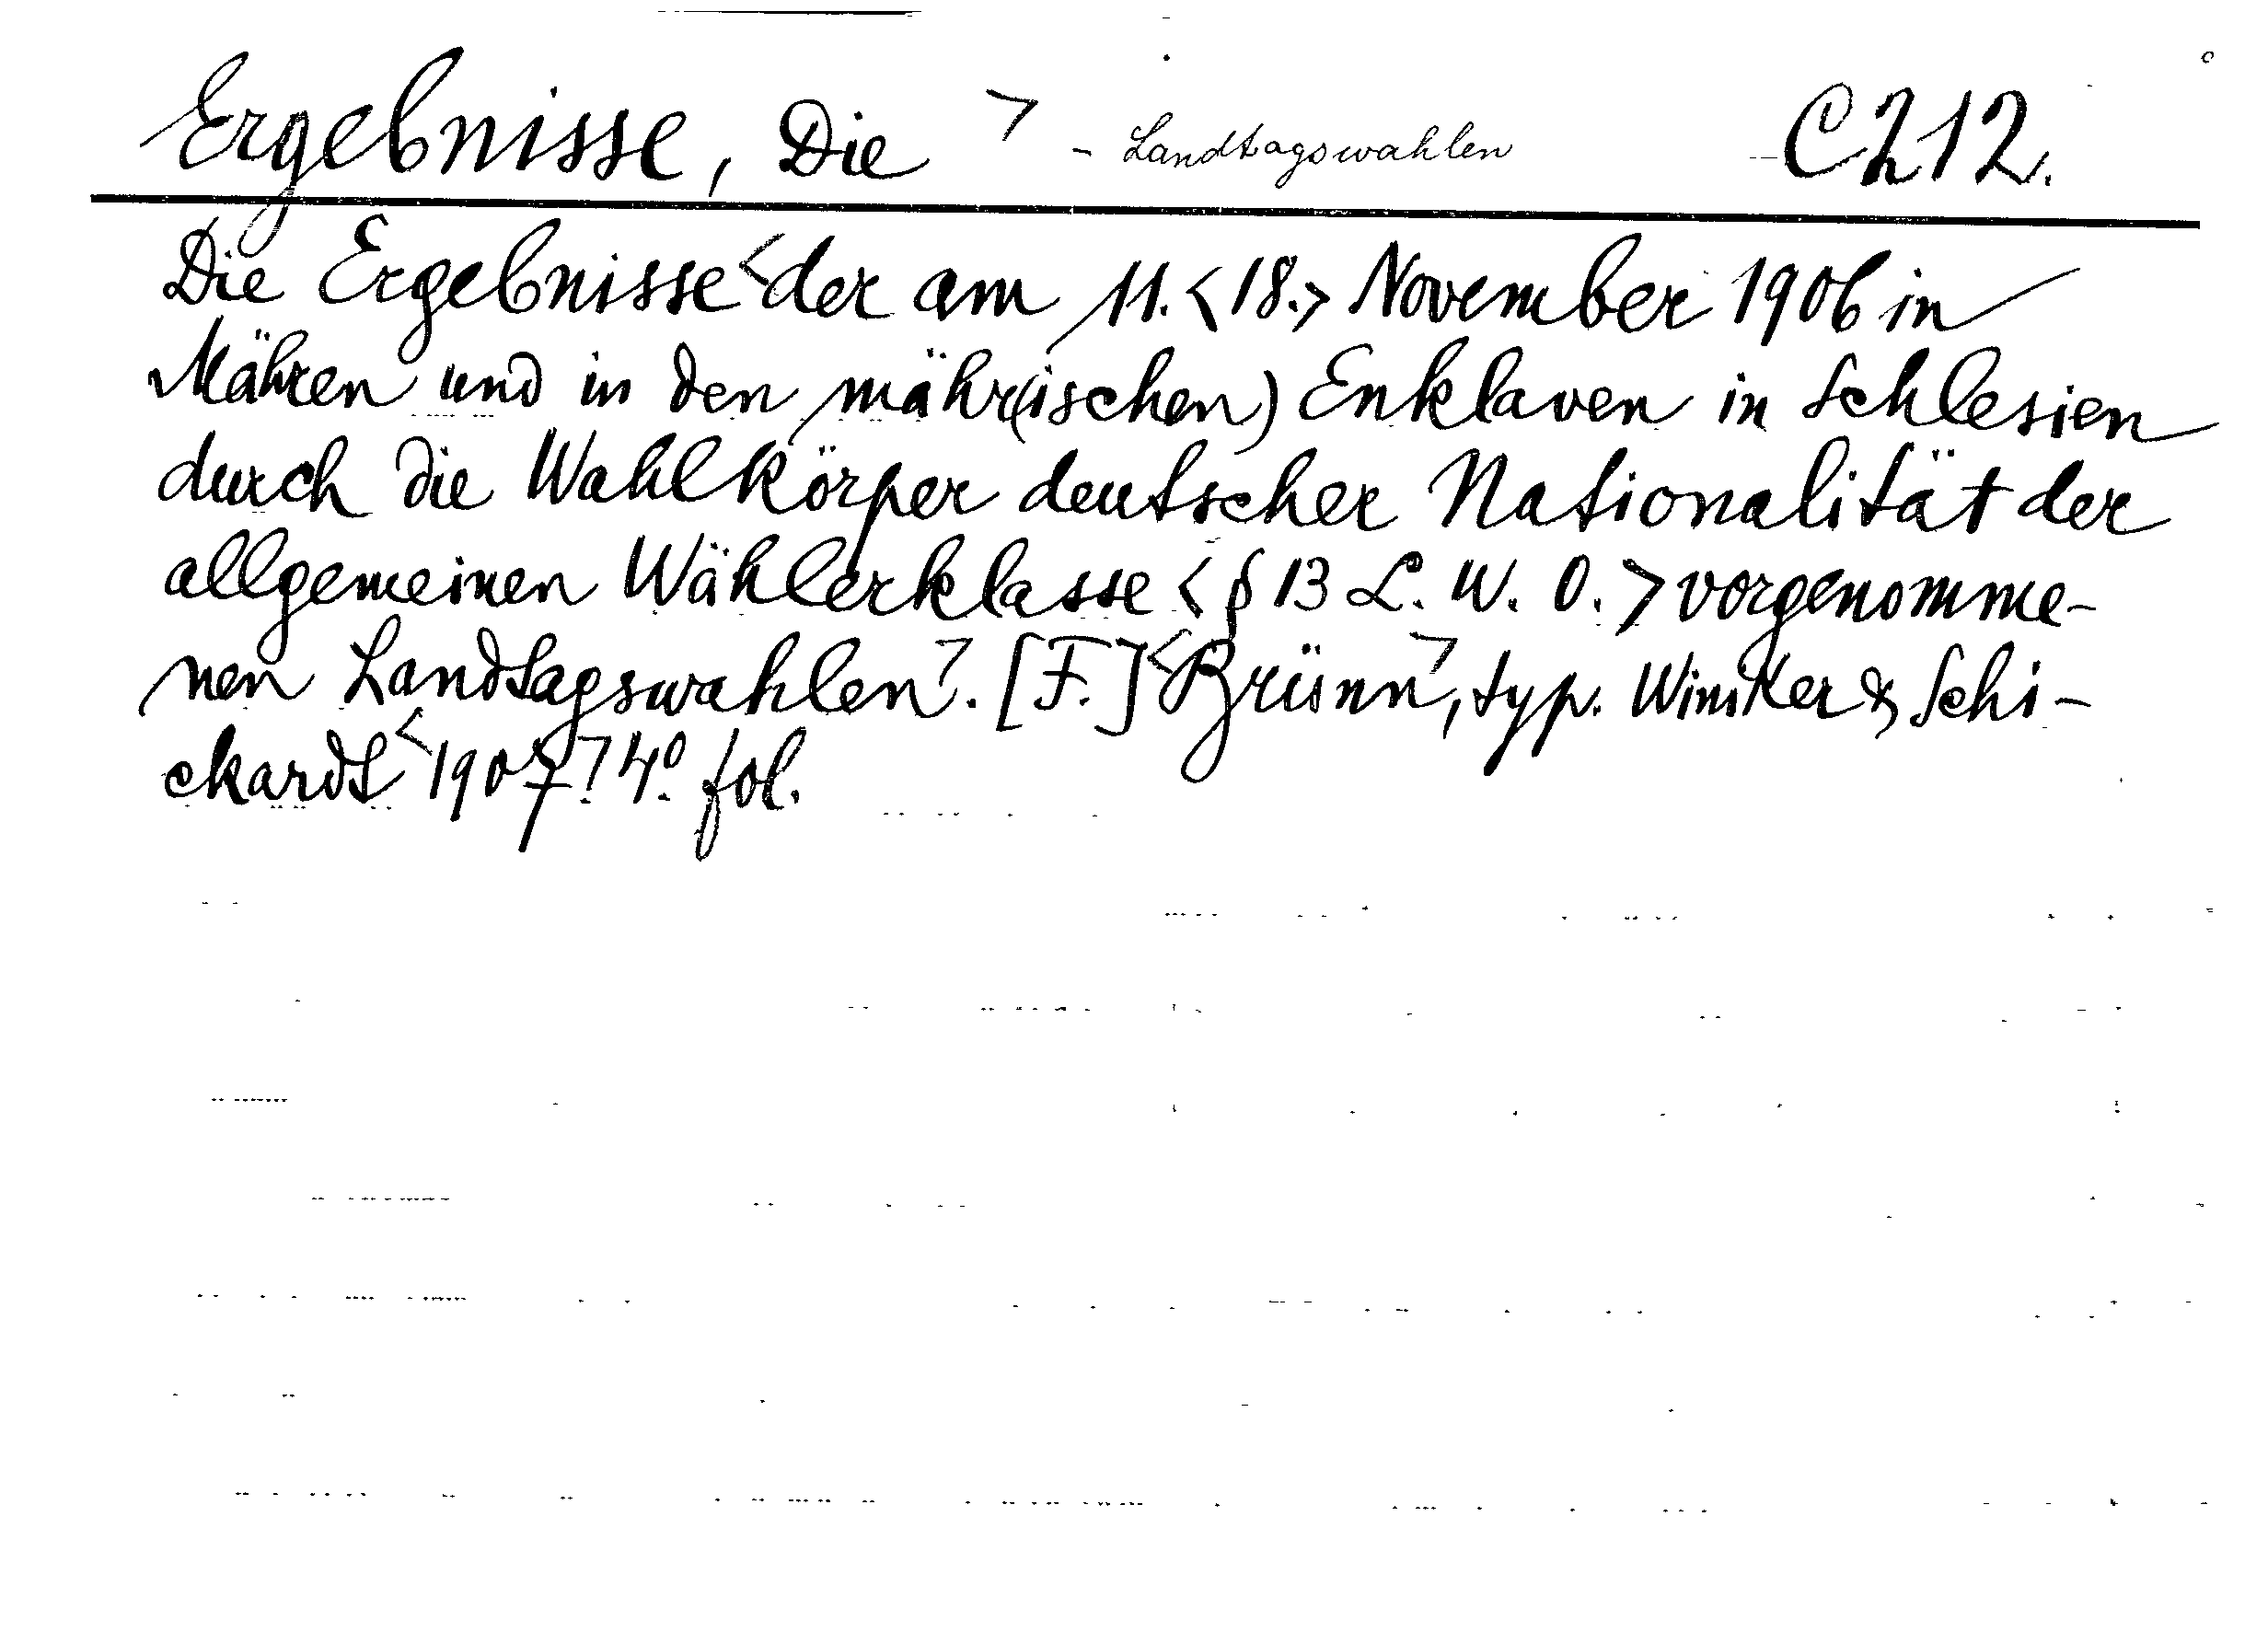 Ergebnisse, Die > - Landtagswahlen C212.
Die Ergebnisse < der am 11. <18.> November 1906 in
Mähren und in den mähr(ischen) Enklaven in Schlesien
durch die Wahlkörper deutscher Nationalität der
allgemeinen Wählerklasse < § 13 L. W. O. > vorgenomme-
nen Landtagswahlen>. [F.] <Brünn>, typ. Winiker & Schi-
ckardt <1907> 4° fol.